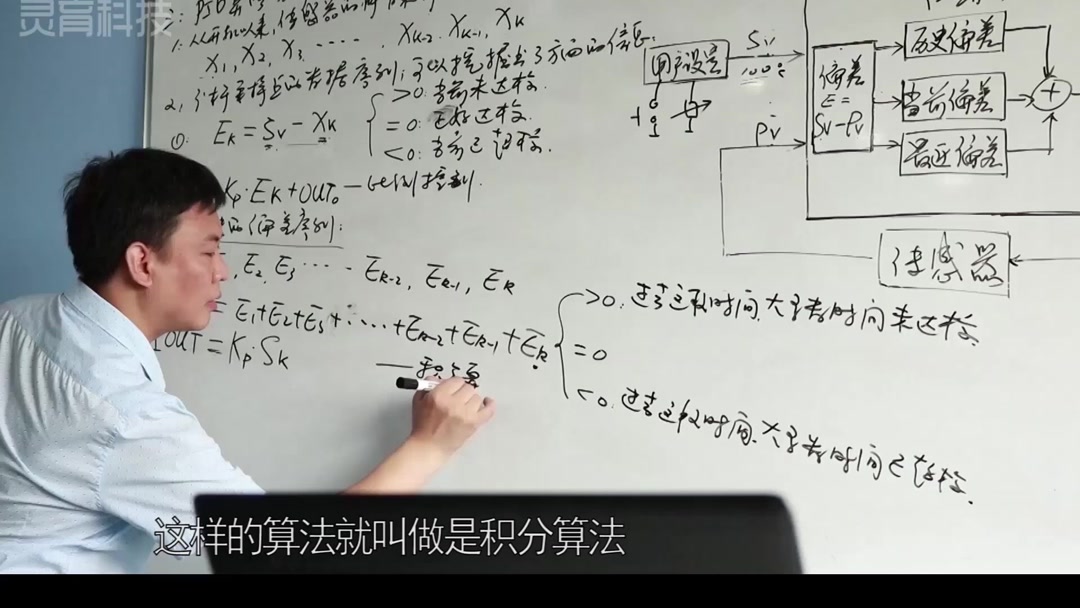 灵育科技
1.从开机以来,传感器的
X₁, X₂, X₃ ····· , Xₖ₋₂, Xₖ₋₁, Xₖ
2,分析采样点的数据序列;可以挖掘出3方面的信息:
①. Eₖ = Sᵥ - Xₖ
>0: 当前未达标.
=0: 正好达标.
<0: 当前已超标.
Kₚ·Eₖ+OUT₀ — 比例控制.
的偏差序列:
, E₂, E₃ ····· Eₖ₋₂, Eₖ₋₁, Eₖ
= E₁+E₂+E₃+·····+Eₖ₋₂+Eₖ₋₁+Eₖ
>0. 过去这段时间,大多数时间未达标.
=0
<0. 过去这段时间,大多数时间已超标.
IOUT = Kₚ·Sₖ
用户设置
Sv
100℃
Pv
偏差
E=
Sv-Pv
历史偏差
当前偏差
最近偏差
+
传感器
这样的算法就叫做是积分算法